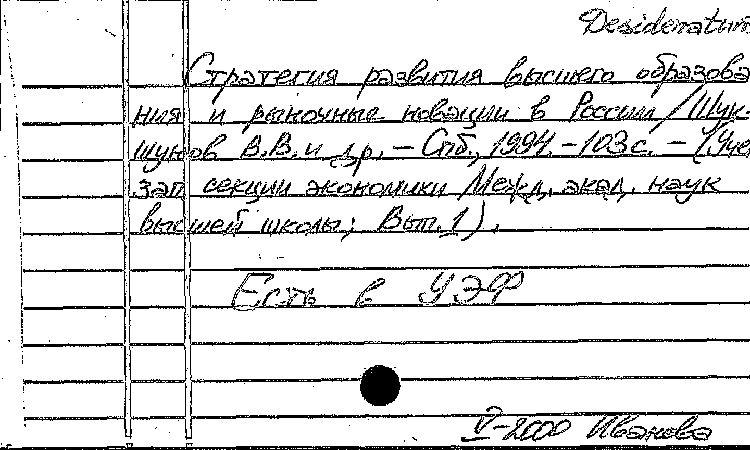 Desideratum
Стратегия развития высшего образова
ния и рыночные новации в России / Шук-
шунов В.В. и др. – Спб., 1994. – 103 с. – (Учен
зап секции экономики Межд. акад. наук
высшей школы; Вып. 1).
Есть в УЭФ
V-2000 Иванова